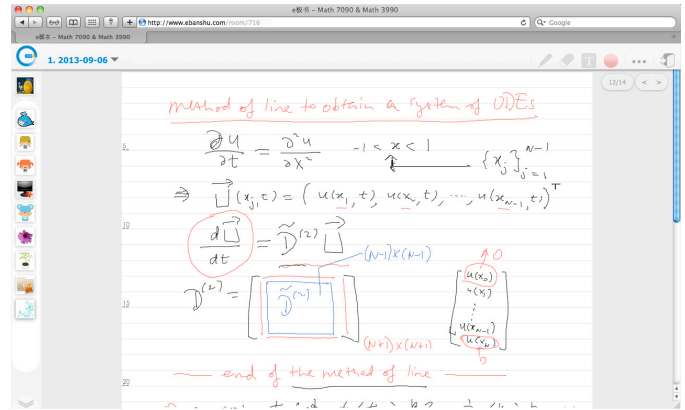 e板书 – Math 7090 & Math 3990
http://www.ebanshu.com/room/716
Google
e板书 – Math 7090 & Math 3990
1. 2013-09-06
12/14
method of line to obtain a system of ODEs
5
∂u/∂t = ∂²u/∂x² -1 < x < 1 {x_j}_{j=1}^{N-1}
⇒ U⃗(x_j, t) = ( u(x_1, t), u(x_2, t), ..., u(x_{N-1}, t) )^T
10
dU⃗/dt = D̃^(2) U⃗
(N-1)×(N-1)
0
D^(2) = [ D̃^(2) ]
15
u(x_0)
u(x_1)
⋮
u(x_{N-1})
u(x_N)
(N+1)×(N+1)
0
end of the method of line
20